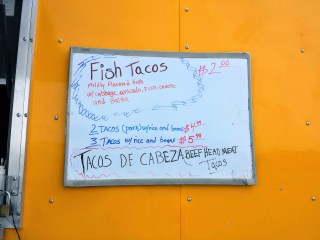 Fish Tacos $2.00
Mildly flavored fish
w/ cabbage, avocado, fish cheese
and salsa
2 TACOS (pork) w/rice and beans $4.99
3 TACOS w/rice and beans $5.99
TACOS DE CABEZA (BEEF HEAD MEAT
Tacos